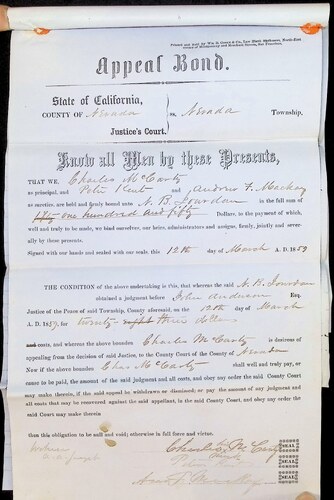 Printed and sold by Wm. B. Cooke & Co., Law Blank Stationers, North-East
corner of Montgomery and Merchant Streets, San Francisco.
Appeal Bond.
State of California,
COUNTY OF Nevada ss. Nevada Township,
Justice's Court.
Know all Men by these Presents,
THAT WE, Charles McCarty
as principal, and Peter and Andrew F. Mackay
as sureties, are held and firmly bound unto N. B. Jourdan
in the full sum of
fifty one hundred and fifty Dollars, to the payment of which,
well and truly to be made, we bind ourselves, our heirs, administrators and assigns, firmly, jointly and sever-
ally by these presents.
Signed with our hands and sealed with our seals, this 12th day of March A. D. 1859
THE CONDITION of the above undertaking is this, that whereas the said N. B. Jourdan
obtained a judgment before John Anderson Esq.
Justice of the Peace of said Township, County aforesaid, on the 12th day of March
A. D. 1859, for twenty-eight three dollars
and costs, and whereas the above bounden Charles McCarty is desirous of
appealing from the decision of said Justice, to the County Court of the County of Nevada
Now if the above bounden Chas McCarty shall well and truly pay, or
cause to be paid, the amount of the said judgment and all costs, and obey any order the said County Court
may make therein, if the said appeal be withdrawn or dismissed; or pay the amount of any judgment and
all costs that may be recovered against the said appellant, in the said County Court, and obey any order the
said Court may make therein
then this obligation to be null and void; otherwise in full force and virtue.
Charles McCarty SEAL
SEAL
SEAL